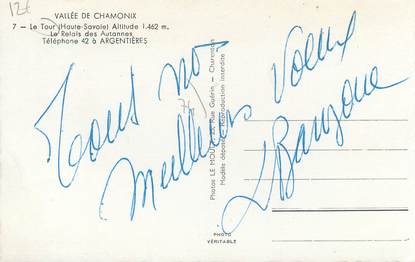 12€
VALLÉE DE CHAMONIX
7 — Le Tour (Haute-Savoie) Altitude 1.462 m.
Le Relais des Autannes
Téléphone 42 à ARGENTIÈRES
Tous nos
Meilleurs Voeux
74
Photos LE MOULT, 22, Rue Guérin - Charenton
Modèle déposé - Reproduction interdite
PHOTO
VÉRITABLE